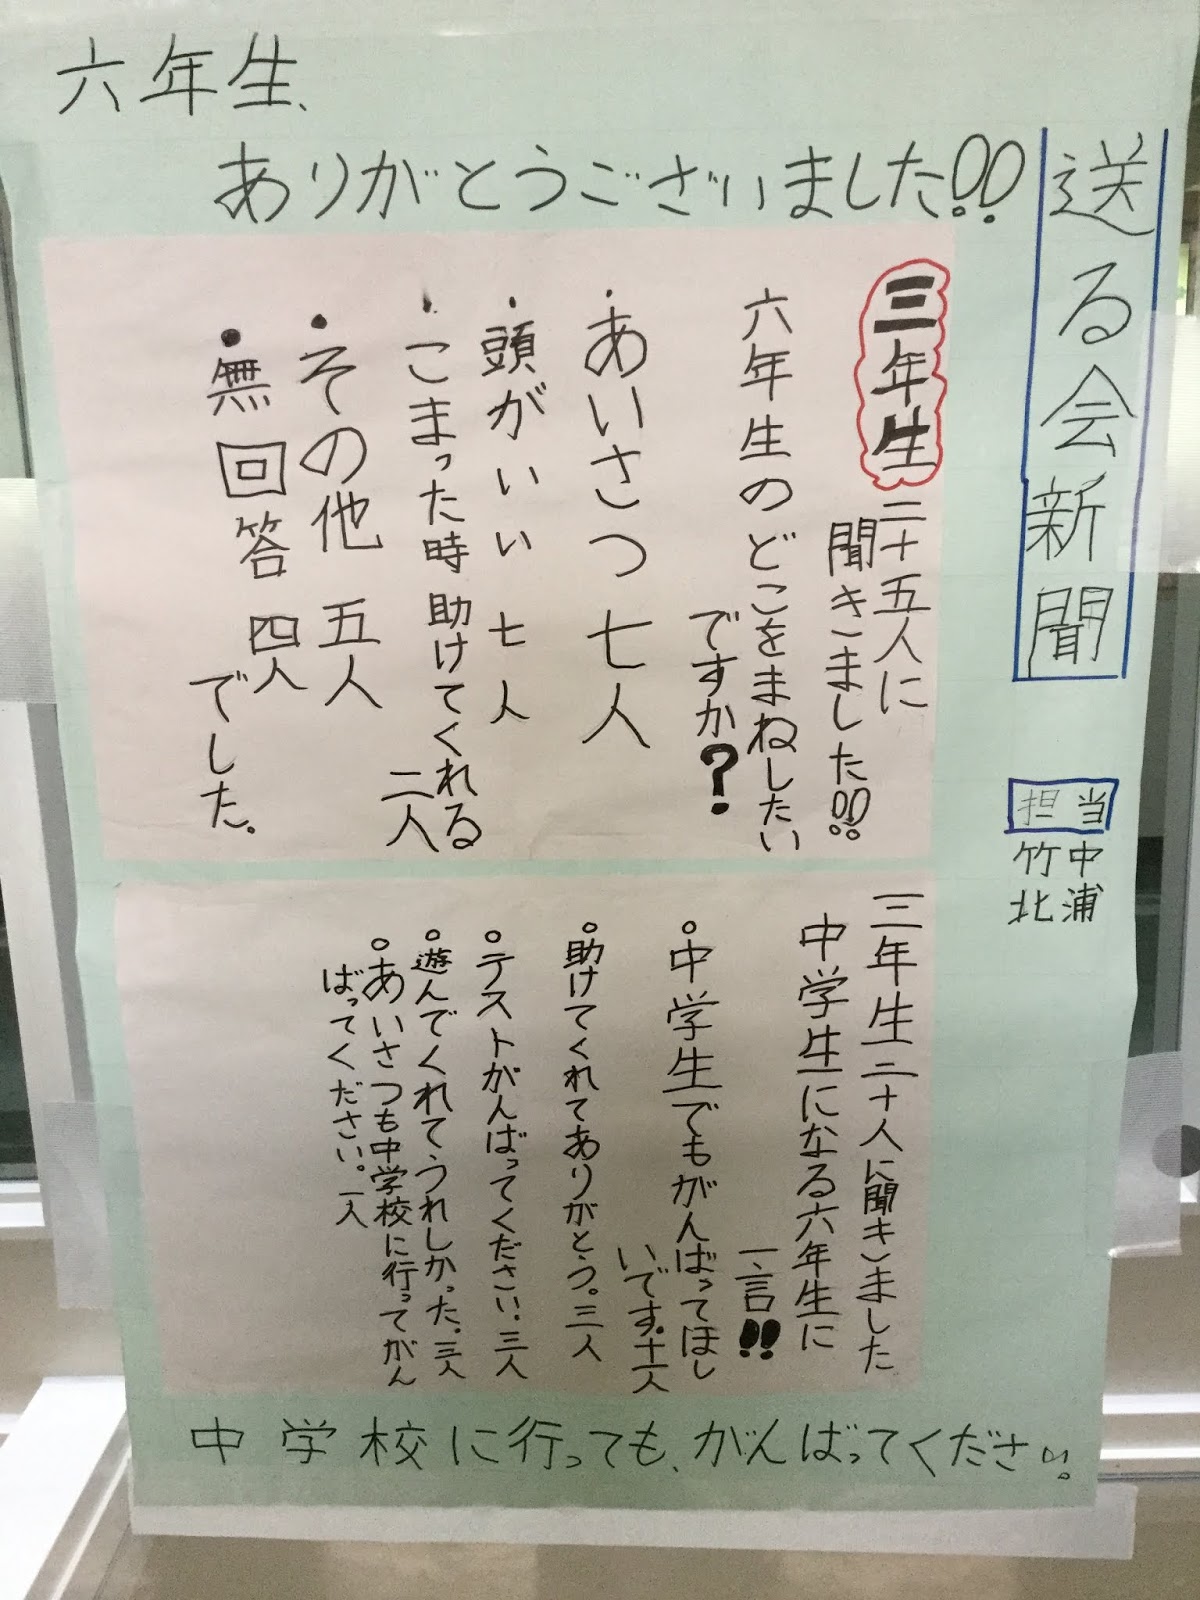 六年生、
ありがとうございました!!
送る会新聞
担当
中浦
竹北
三年生二十五人に
聞きました!!
六年生のどこをまねしたい
ですか?
・あいさつ 七人
・頭がいい 七人
・こまった時助けてくれる
二人
・その他 五人
・無回答 四人
でした。
三年生二十人に聞きました
中学生になる六年生に
一言!!
○中学生でもがんばってほし
いです。十一人
○助けてくれてありがとう。三人
○テストがんばってください。三人
○遊んでくれてうれしかった。三人
○あいさつも中学校に行ってがん
ばってください。一人
中学校に行っても、がんばってください。